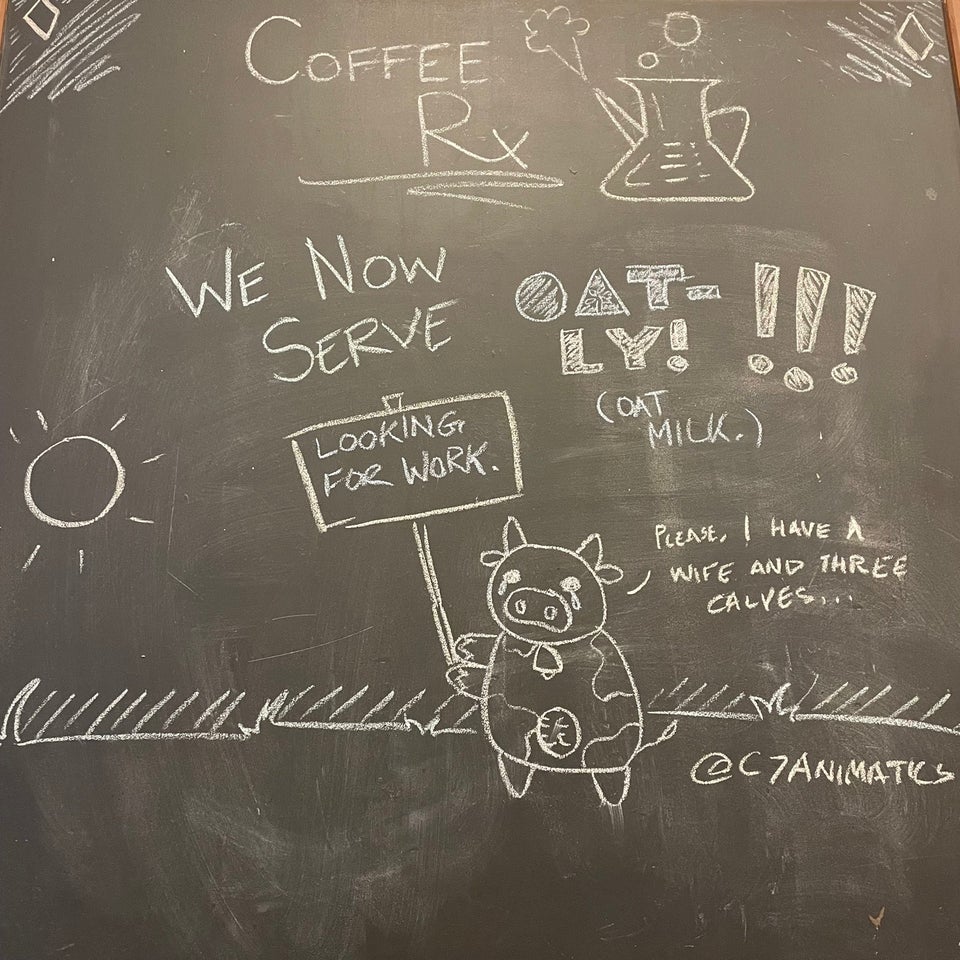 COFFEE
Rx
WE NOW
SERVE
OAT-
LY!
!!!
(OAT
MILK.)
LOOKING
FOR WORK.
PLEASE, I HAVE A
WIFE AND THREE
CALVES...
@C7ANIMATICS